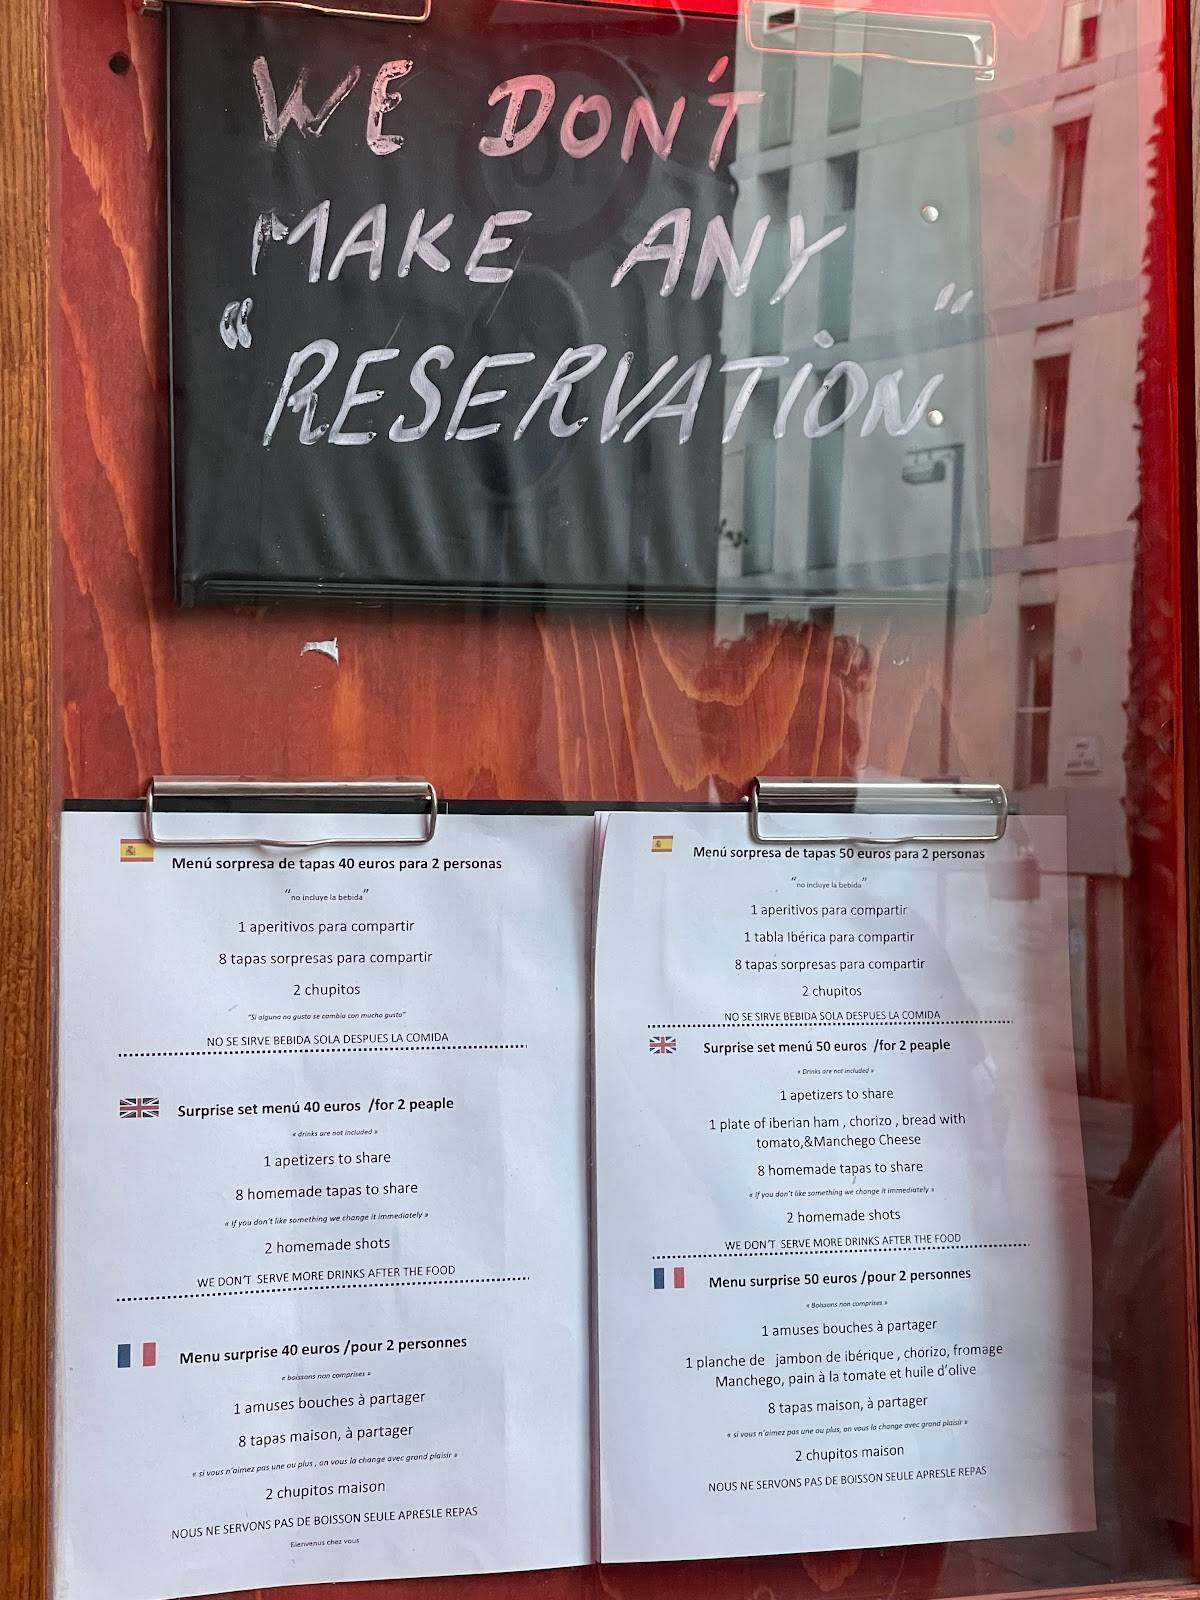 WE DON'T
MAKE ANY
"RESERVATION"
Menú sorpresa de tapas 40 euros para 2 personas
"no incluye la bebida"
1 aperitivos para compartir
8 tapas sorpresas para compartir
2 chupitos
"Si alguna no gusta se cambia con mucho gusto"
NO SE SIRVE BEBIDA SOLA DESPUES LA COMIDA
Surprise set menú 40 euros /for 2 peaple
« drinks are not included »
1 apetizers to share
8 homemade tapas to share
« If you don't like something we change it immediately »
2 homemade shots
WE DON'T SERVE MORE DRINKS AFTER THE FOOD
Menu surprise 40 euros /pour 2 personnes
« boissons non comprises »
1 amuses bouches à partager
8 tapas maison, à partager
« si vous n'aimez pas une ou plus , on vous la change avec grand plaisir »
2 chupitos maison
NOUS NE SERVONS PAS DE BOISSON SEULE APRESLE REPAS
Bienvenus chez vous
Menú sorpresa de tapas 50 euros para 2 personas
"no incluye la bebida"
1 aperitivos para compartir
1 tabla Ibérica para compartir
8 tapas sorpresas para compartir
2 chupitos
NO SE SIRVE BEBIDA SOLA DESPUES LA COMIDA
Surprise set menú 50 euros /for 2 peaple
« Drinks are not included »
1 apetizers to share
1 plate of iberian ham , chorizo , bread with
tomato,&Manchego Cheese
8 homemade tapas to share
« If you don't like something we change it immediately »
2 homemade shots
WE DON'T SERVE MORE DRINKS AFTER THE FOOD
Menu surprise 50 euros /pour 2 personnes
« Boissons non comprises »
1 amuses bouches à partager
1 planche de jambon de ibérique , chorizo, fromage
Manchego, pain à la tomate et huile d'olive
8 tapas maison, à partager
« si vous n'aimez pas une ou plus, on vous la change avec grand plaisir »
2 chupitos maison
NOUS NE SERVONS PAS DE BOISSON SEULE APRESLE REPAS